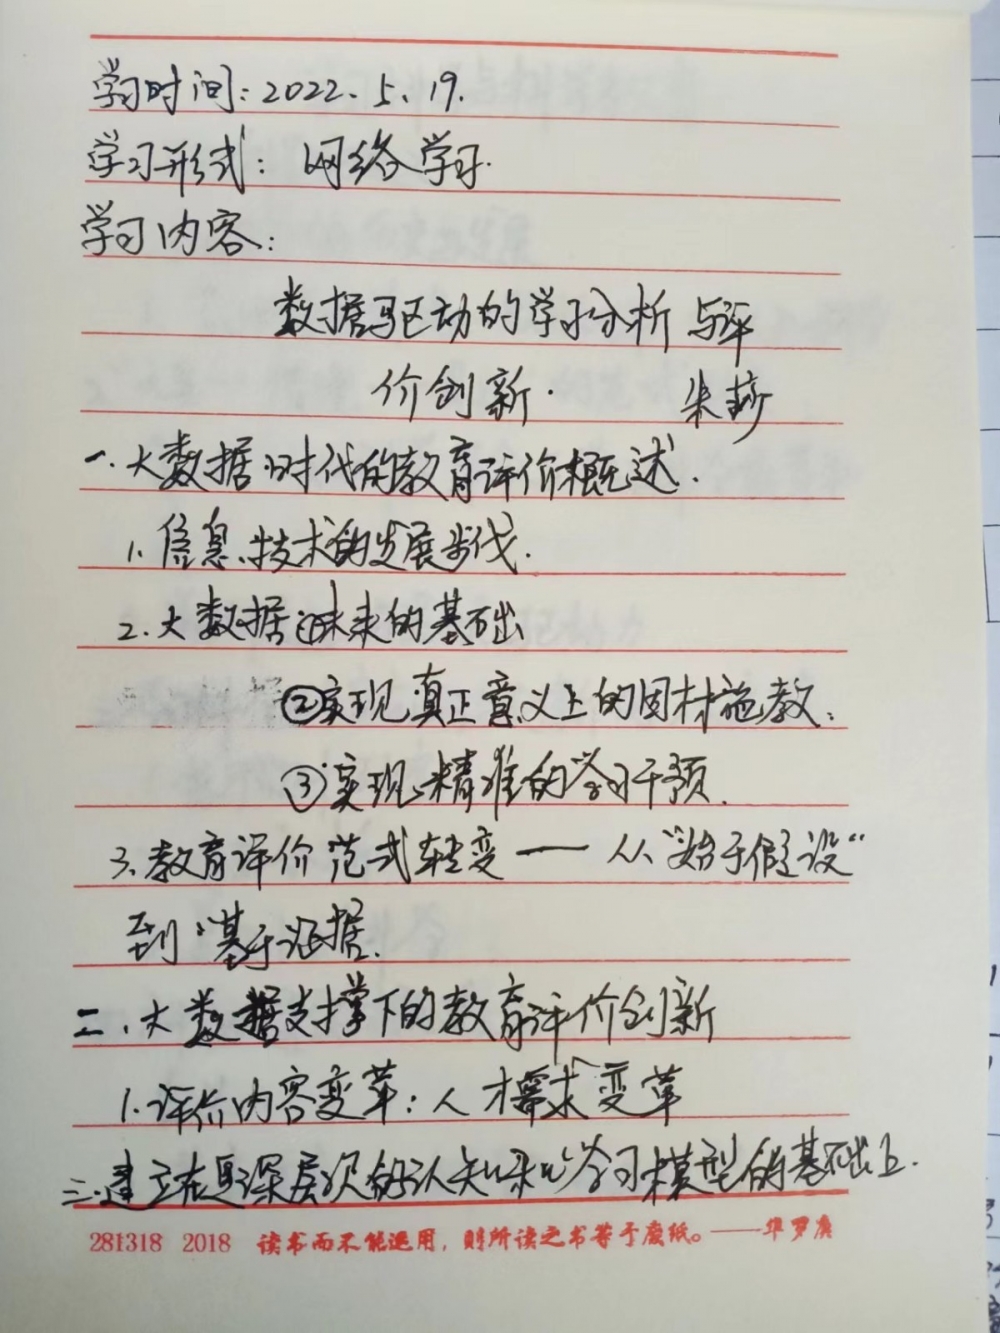 学习时间:2022.5.19.
学习形式:网络学习.
学习内容:
数据驱动的学习分析与评
价创新. 朱莎
一.大数据时代的教育评价概述.
1.信息技术的发展步伐.
2.大数据 未来的基础
②实现真正意义上的因材施教.
③实现精准的学习干预.
3.教育评价范式转变——从“始于假设”
到“基于证据.
二.大数据支撑下的教育评价创新
1.评价内容变革:人才需求变革
三.建立在更深层次的认知 学习模型的基础上.
281318 2018 读书而不能运用,则所读之书等于废纸。——华罗庚